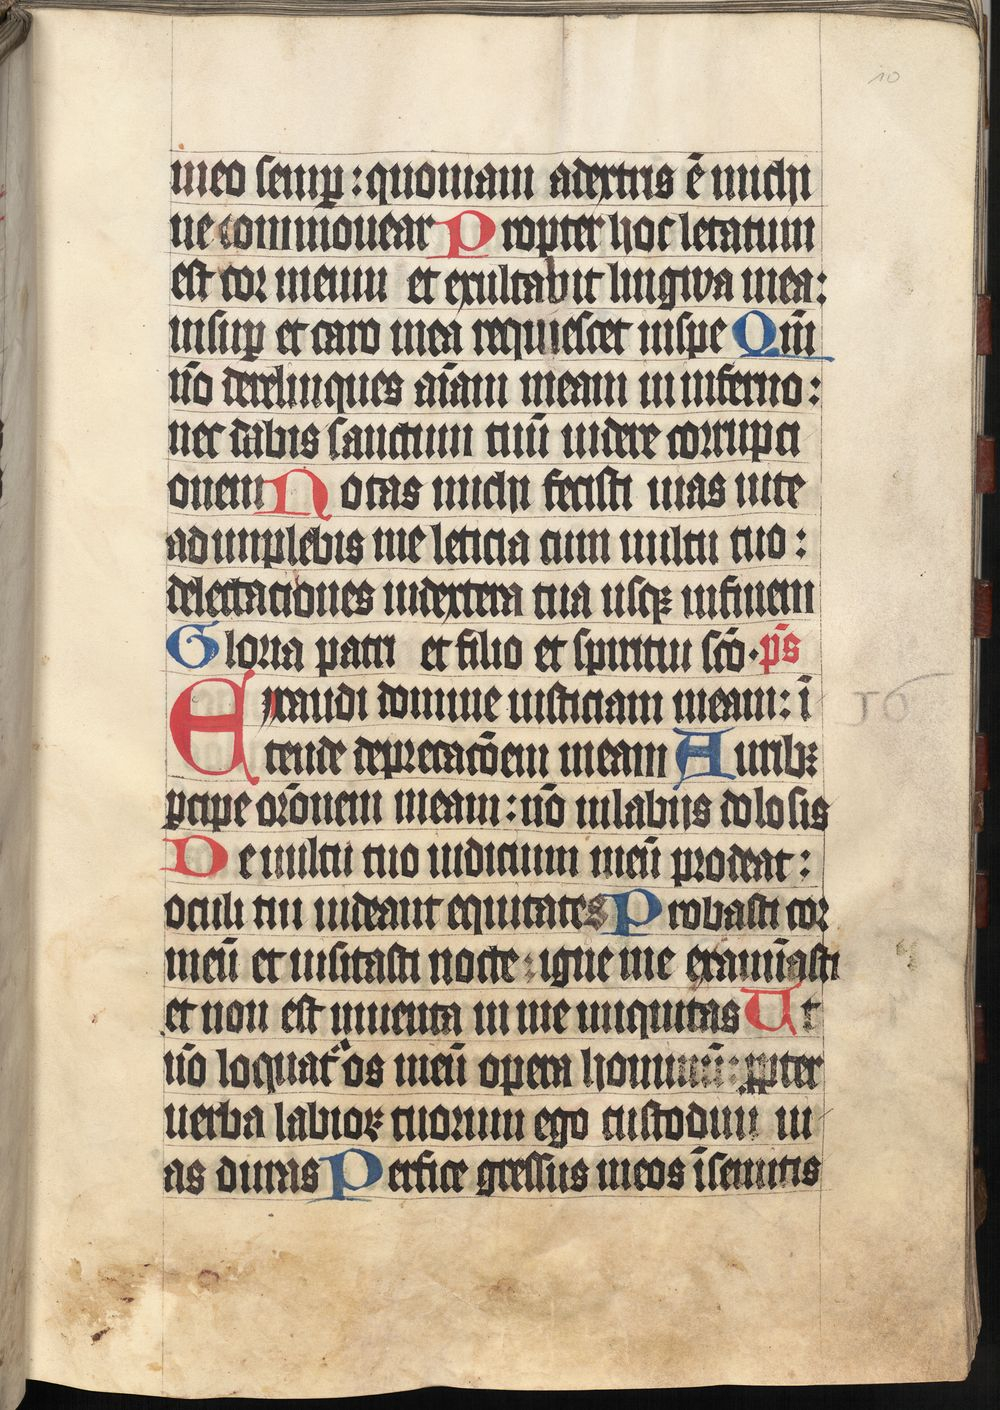 10
meo semꝑ : quoniam adextris ē michi
ne commouear Propter hoc letatum
est cor meum et exultabit lingwa mea :
insuꝑ et caro mea requiescet inspe Qm̄
nō derelinques aīam meam in inferno :
nec dabis sanctum tuū uidere corrupci
onem Notas michi fecisti uias uite
adimplebis me leticia cum uultu tuo :
delectaciones indextera tua usqꝫ infinem
Gloria patri et filio et spiritui scō · ps̄
Exaudi domine iusticiam meam : ī
tende deprecacōem meam Auribꝫ
ꝑcipe orōnem meam : nō inlabiis dolosis
De uultu tuo iudicium meū prodeat :
oculi tui uideant equitates Probasti cor
meū et uisitasti nocte : igne me examīasti
et non est inuenta in me iniquitas Ut
nō loquat᷑ os meū opera hominū : ꝓpter
uerba labioꝝ tuorum ego custodiui ui
as duras Perfice gressus meos ī semitis
16